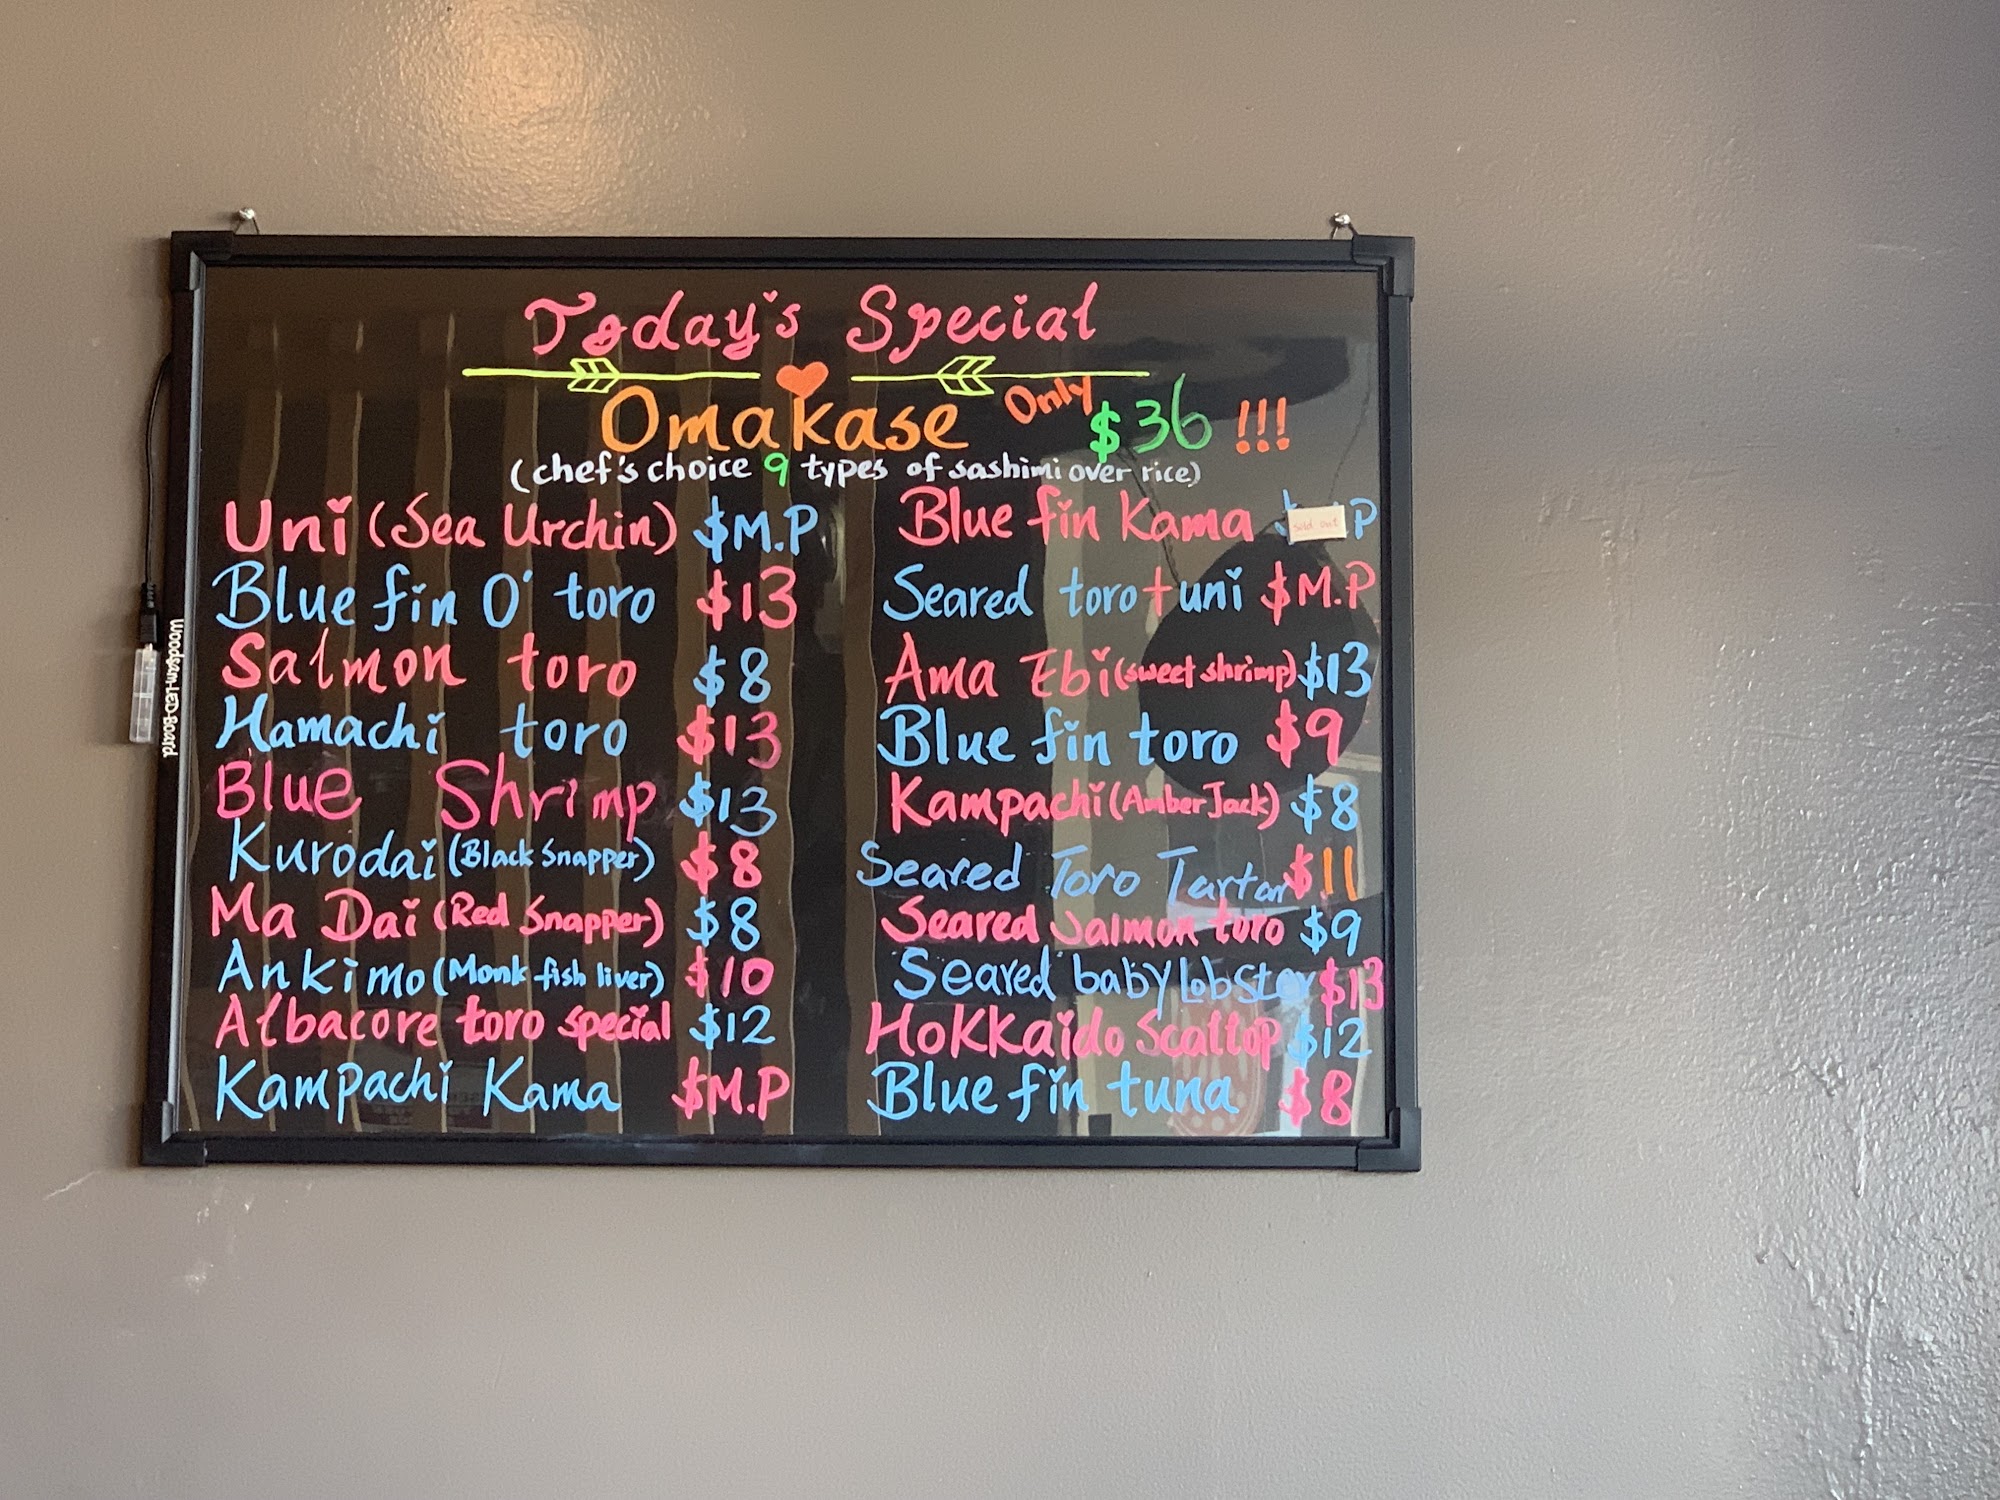 Today's Special
Omakase Only $36 !!!
(chef's choice 9 types of sashimi over rice)
Uni (Sea Urchin) $M.P
Blue fin O' toro $13
Salmon toro $8
Hamachi toro $13
Blue Shrimp $13
Kurodai (Black Snapper) $8
Ma Dai (Red Snapper) $8
Ankimo (Monk fish liver) $10
Albacore toro special $12
Kampachi Kama $M.P
Blue fin Kama $ sold out P
Seared toro + uni $M.P
Ama Ebi (sweet shrimp) $13
Blue fin toro $9
Kampachi (Amber Jack) $8
Seared Toro Tartar $11
Seared Salmon toro $9
Seared baby Lobster $13
Hokkaido Scallop $12
Blue fin tuna $8
Woodsam-LED-Board